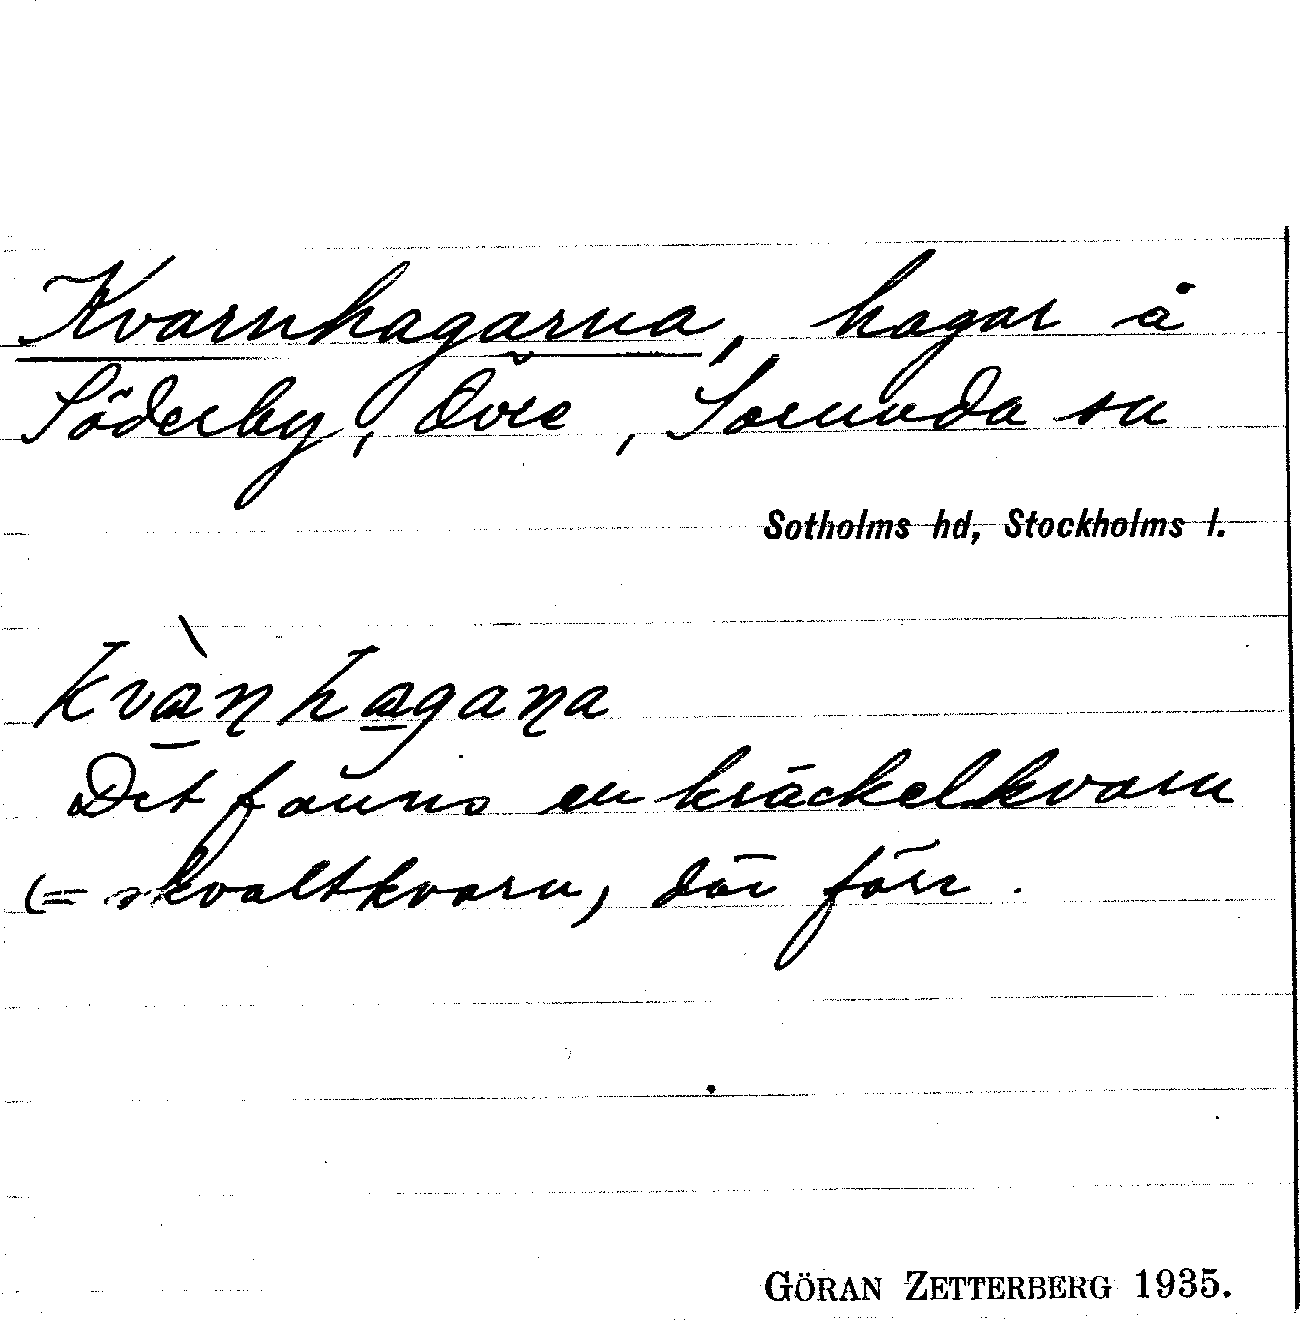 Kvarnhagarna, hagar å
Söderby, Övre, Sorunda sn
Sotholms hd, Stockholms l.
kvàn hagana
Det fanns en kräckelkvarn
(= skvaltkvarn) där förr.
GÖRAN ZETTERBERG 1935.